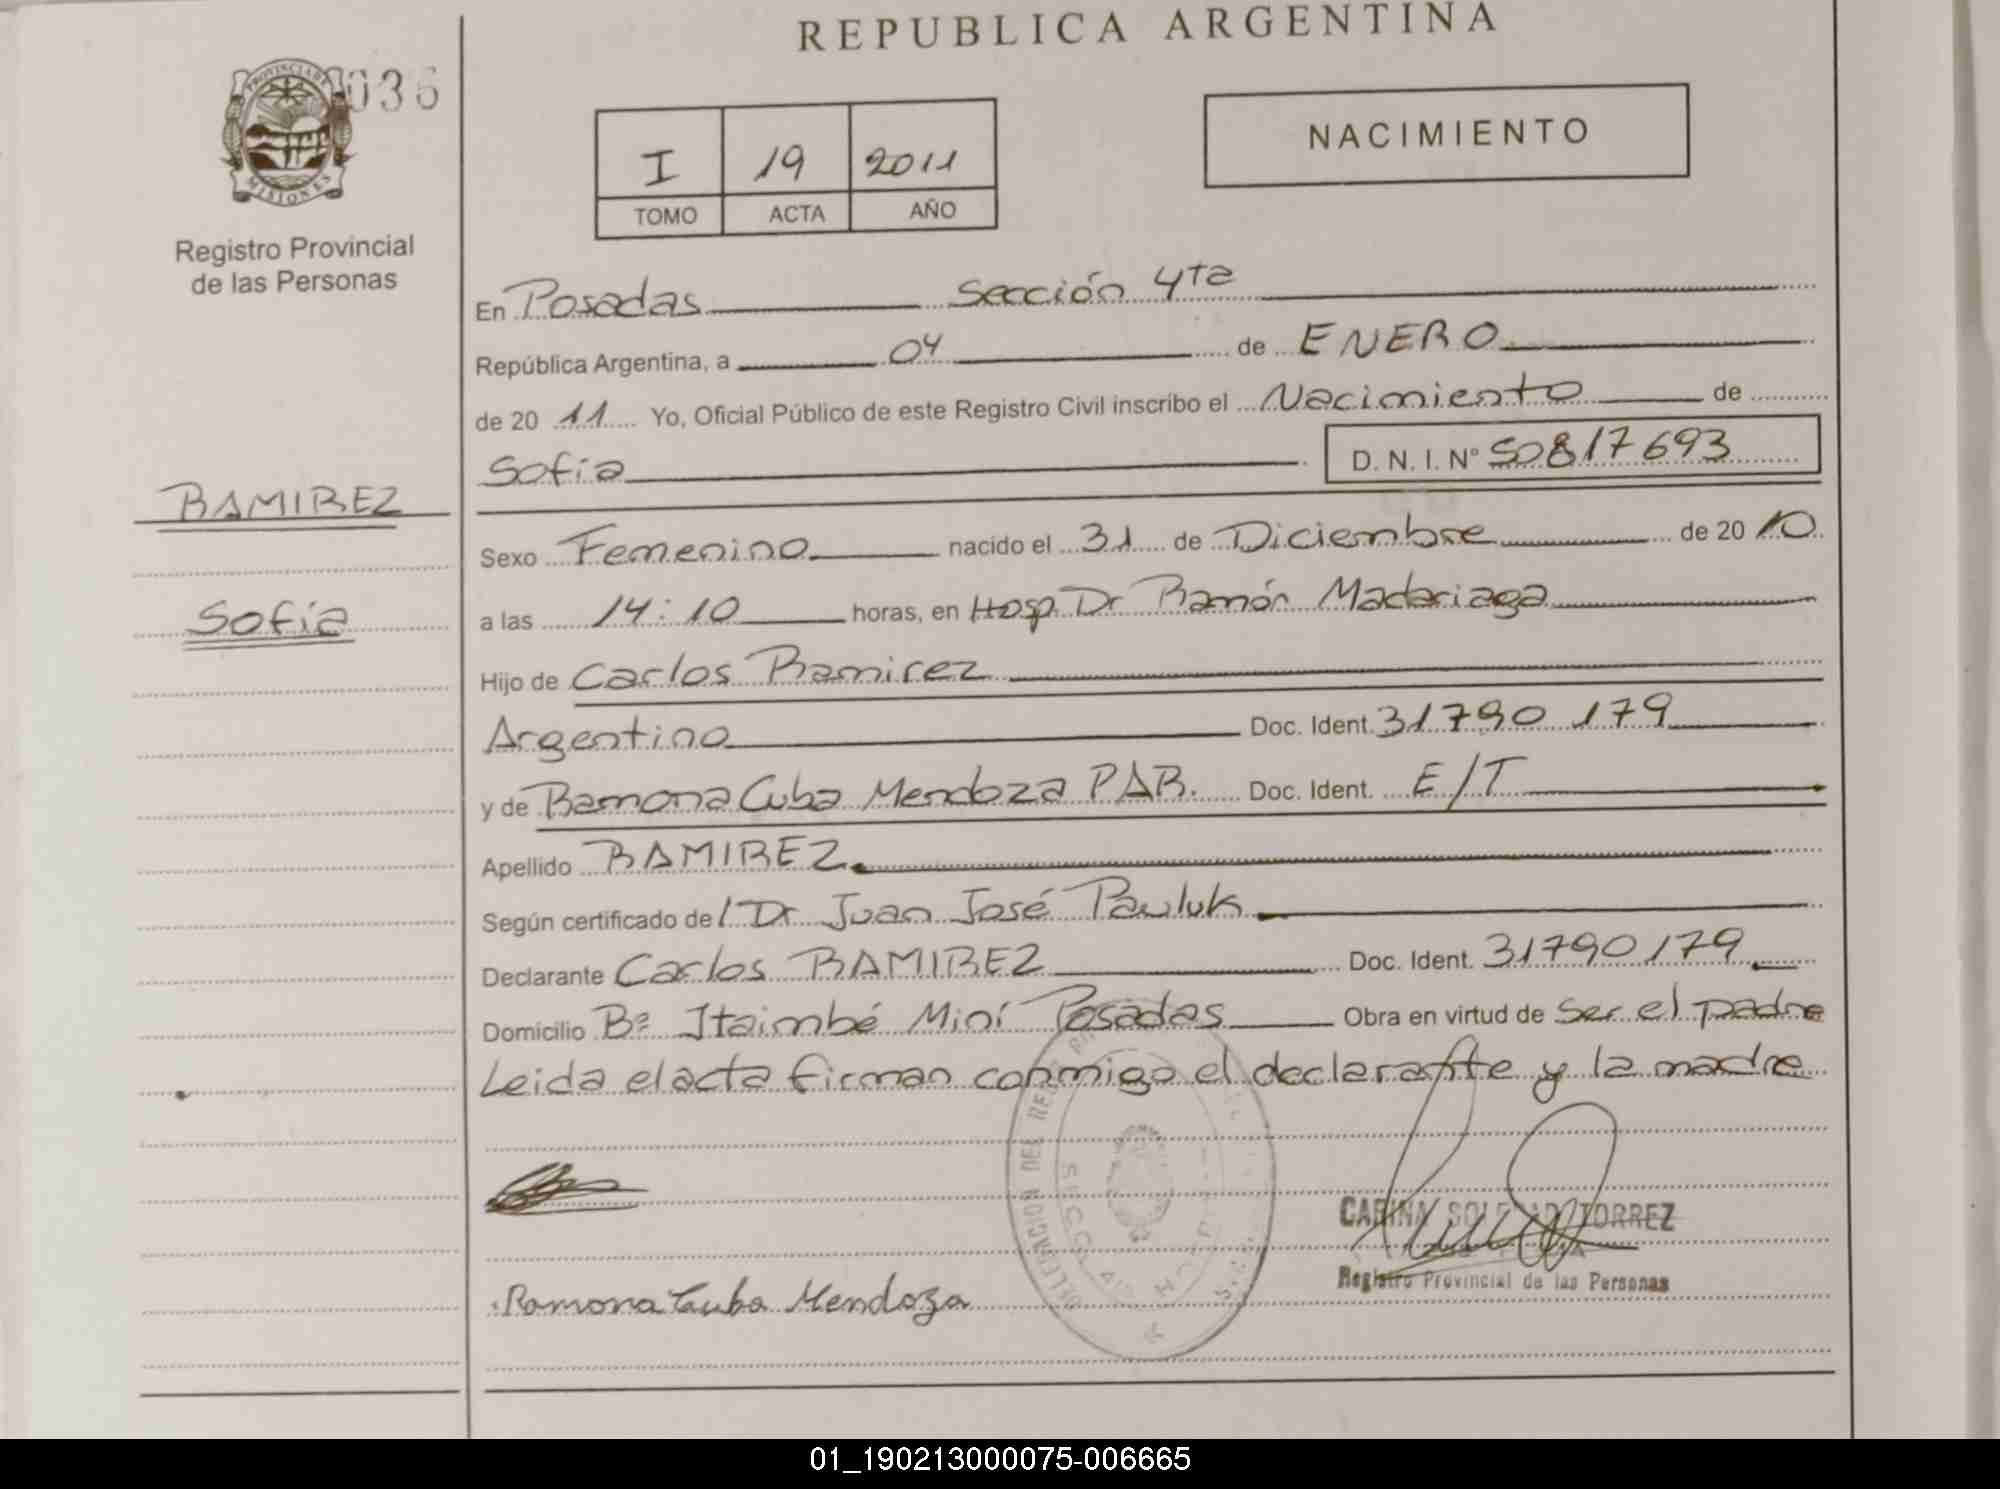 REPUBLICA ARGENTINA
036
PROVINCIA DE MISIONES
Registro Provincial
de las Personas
I 19 2011
TOMO ACTA AÑO
NACIMIENTO
En Posadas Sección 4ta
República Argentina, a 04 de ENERO
de 20 11 Yo, Oficial Público de este Registro Civil inscribo el Nacimiento de
Sofia D. N. I. Nº 50817693
RAMIREZ
Sofía
Sexo Femenino nacido el 31 de Diciembre de 20 10
a las 14:10 horas, en Hosp. Dr Ramón Madariaga
Hijo de Carlos Ramirez
Argentino Doc. Ident. 31790 179
y de Ramona Cuba Mendoza PAR. Doc. Ident. E/T
Apellido RAMIREZ
Según certificado de l Dr Juan José Pawluk
Declarante Carlos RAMIREZ Doc. Ident. 31790179
Domicilio Bº Itaimbé Miní Posadas Obra en virtud de Ser el padre
Leida el acta firman conmigo el declarante y la madre
CARINA SOLEDAD TORREZ
Registro Provincial de las Personas
Ramona Cuba Mendoza
01_190213000075-006665